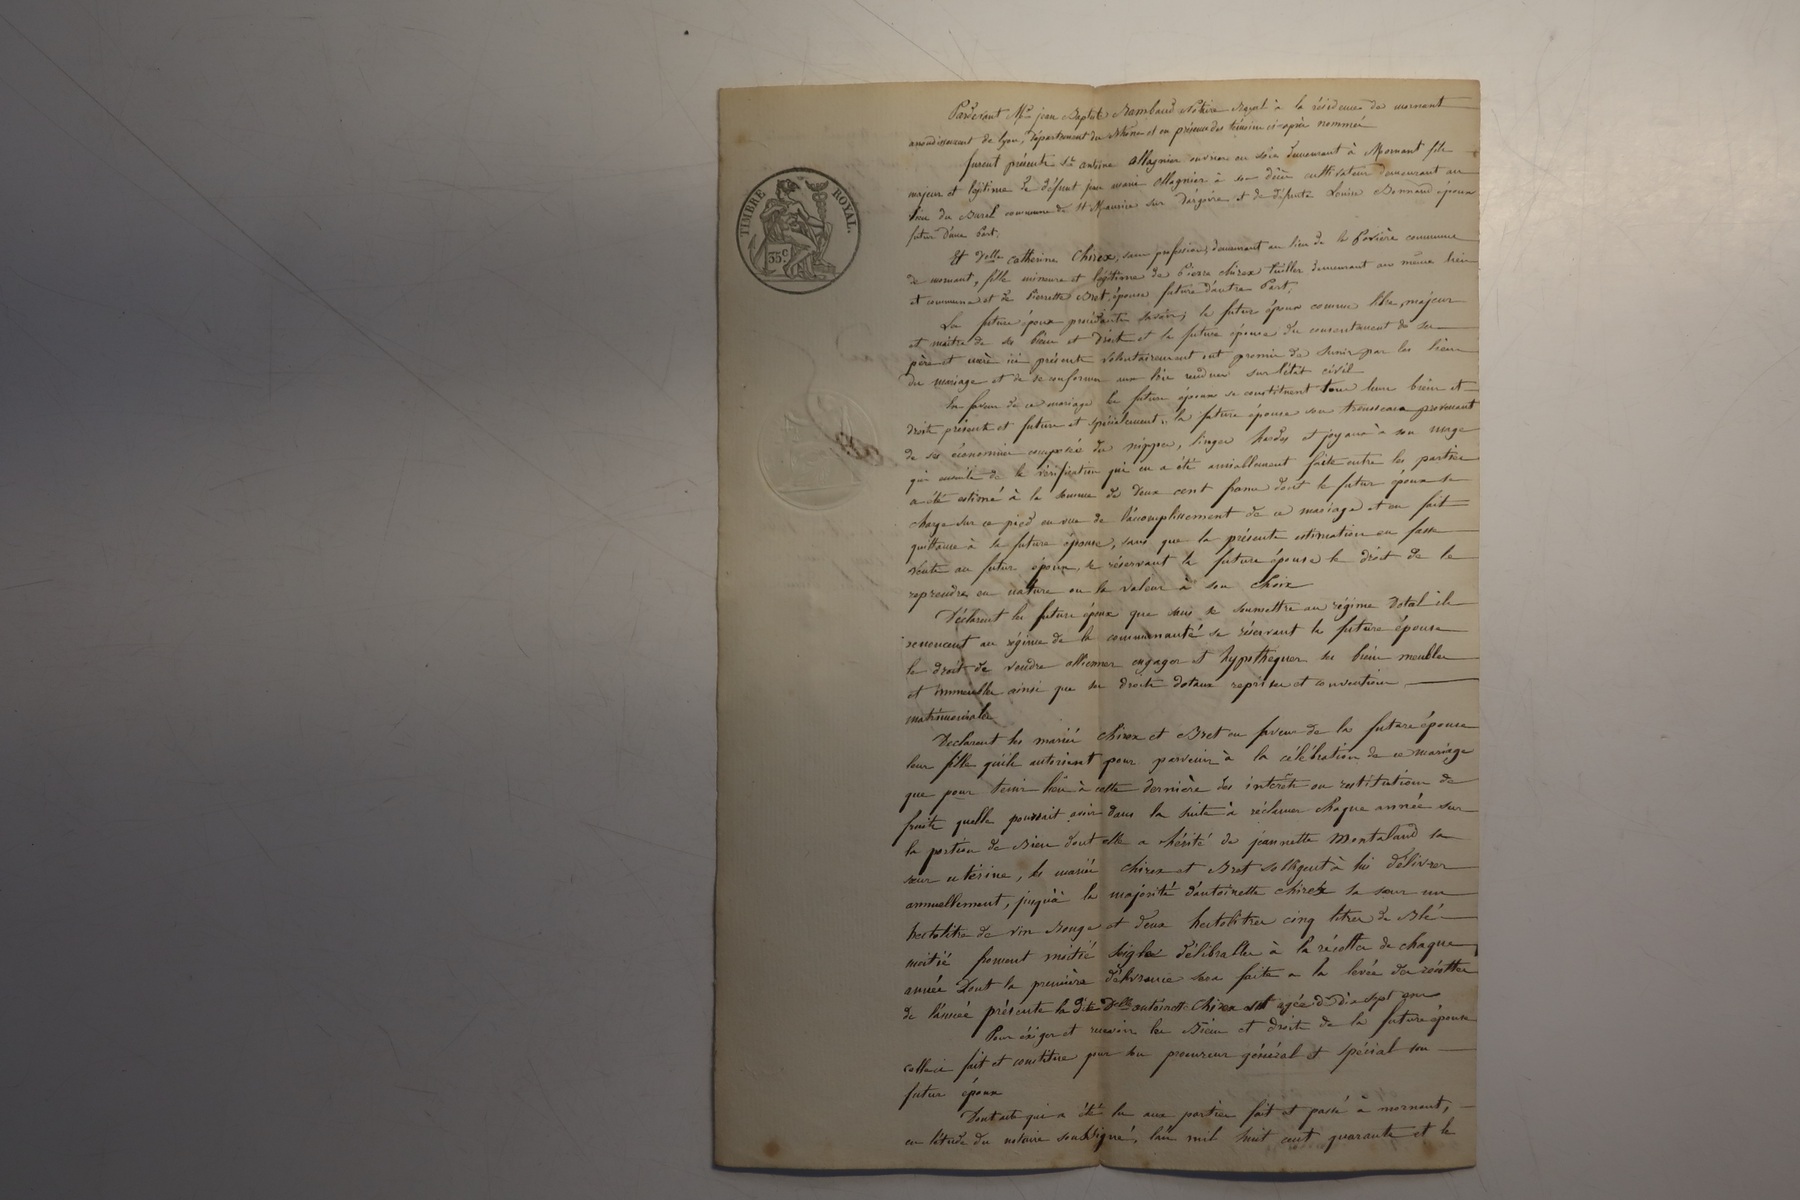 TIMBRE ROYAL.
35c
Pardevant Me jean Baptiste Rambaud Notaire Royal à la résidence de mornant
arrondissement de lyon, département du Rhône et en présence des témoins ci-après nommés
furent présents Sr antoine Magnier ouvrier en soie demeurant à Mornant fils
majeur et légitime de défunt jean marie Magnier à son décès cultivateur demeurant au
lieu du Baril commune de St Maurice sur dargoire et de défunte Louise Bonnard époux
futur d'une Part.
Et delle catherine Chirex, sans profession, demeurant au lieu de la commune
de mornant, fille mineure et légitime de Pierre chirex demeurant au même lieu
et commune et de Pierrette Bret épouse future d'autre Part.
Les futurs époux procédants savoir; le futur époux comme libre, majeur
et maitre de ses biens et droits et la future épouse du consentement de ses
père et mère ici présents volontairement ont promis de s'unir par les liens
du mariage et de se conformer aux lois rendues sur l'état civil
En faveur de ce mariage les futurs époux se constituent tous leurs biens et
droits présents et futurs et spécialement la future épouse son trousseau provenant
de ses économies composé de nippes, linges hardes et joyaux à son usage
qui ensuite de la vérification qui en a été amiablement faite entre les parties
a été estimé à la somme de deux cent francs dont le futur époux se
charge sur ce pied en vue de l'accomplissement de ce mariage et en fait
quittance à la future épouse, sans que la présente estimation en fasse
vente au futur époux, se réservant la future épouse le droit de le
reprendre en nature ou la valeur à son choix
Déclarent les futurs époux que sans se soumettre au régime dotal ils
renoncent au régime de la communauté se réservant la future épouse
le droit de vendre alliener engager et hypothequer ses biens meubles
et immeubles ainsi que ses droits dotaux reprises et conventions
matrimoniales
Declarent les mariés chirex et Bret en faveur de la future épouse
leur fille quils autorisent pour parvenir à la célébration de ce mariage
que pour tenir lieu à cette dernière des interêts ou restitutions de
fruits quelle pourrait avoir dans la suite à réclamer chaque année sur
la portion de Biens dont elle a hérité de jeannette Montaland sa
sœur uterine, les mariés chirex et Bret sobligent à lui délivrer
annuellement, jusquà la majorité d'antoinette chirex sa sœur un
hectolitre de vin Rouge et deux hectolitres cinq litres de Blé
moitié froment moitié seigle délibrables à la récolte de chaque
année dont la première délivrance sera faite a la levée des récoltes
de l'année présente la dite Delle antoinette Chirex est agée de dix sept ans
Pour éxiger et recevoir les Biens et droits de la future épouse
celle ci fait et constitue pour son procureur général et spécial son
futur époux
Dont acte qui a été lu aux parties fait et passé à mornant,
en l'étude du notaire soussigné, l'an mil huit cent quarante et le